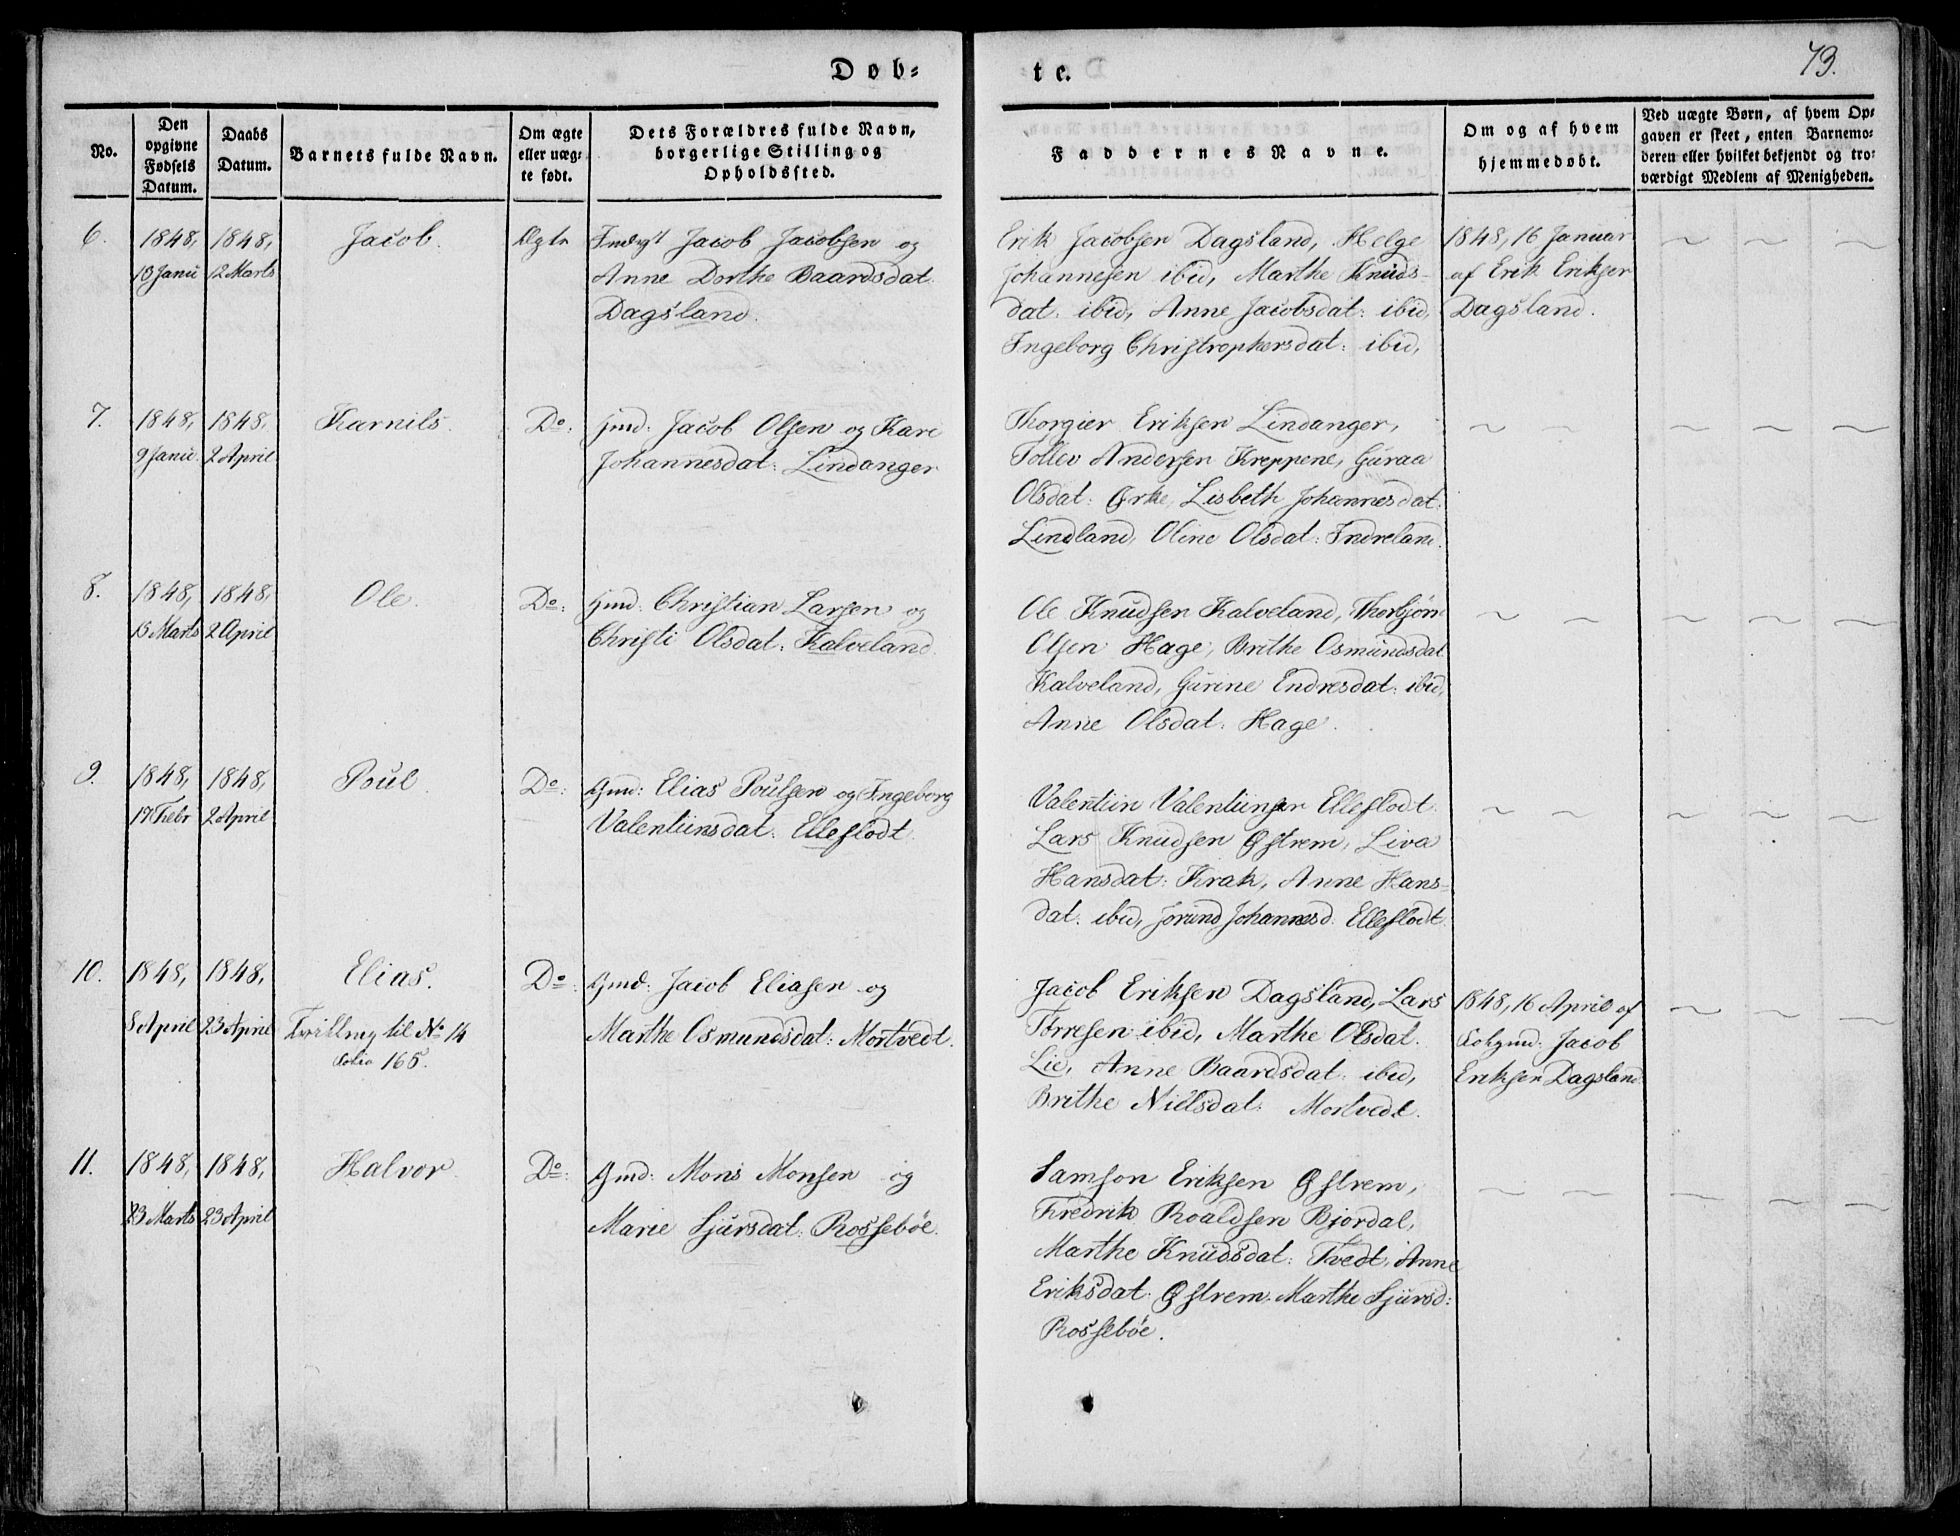 Døb-
te.
73.
No.
Den opgivne Fødsels Datum.
Daabs Datum.
Barnets fulde Navn.
Om ægte eller uægte født.
Dets Forældres fulde Navn, borgerlige Stilling og Opholdssted.
Faddernes Navne.
Om og af hvem hjemmedøbt.
Ved uægte Børn, af hvem Opgaven er skeet, enten Barnemoderen eller hvilket bekjendt og troværdigt Medlem af Menigheden.
6.
1848,
13 Janu
1848,
12 Marts
Jacob.
Ægte
Indryst Jacob Jacobsen og
Anne Dorthe Baardsdat.
Dagsland.
Erik Jacobsen Dagsland, Helge
Johannesen ibid, Marthe Knuds-
dat. ibid, Anne Jacobsdat: ibid,
Ingeborg Christophersdat: ibid,
1848, 16 Januar
af Erik Eriksen
Dagsland.
7.
1848,
9 Janu.
1848,
2 April
Karnils.
Do:
Gmd: Jacob Olsen og Kari
Johannesdat: Lindanger
Thorgier Eriksen Lindanger,
Tollev Andersen Kreppene, Guraa
Olsdat: Ørke, Lisbeth Johannesdat:
Lindland, Oline Olsdat: Indreland.
8.
1848,
13 Marts
1848,
2 April
Ole.
Do:
Gmd: Christian Larsen og
Christi Olsdat: Kalveland.
Ole Knudsen Kalveland, Thorbjøn
Olsen Hage, Brithe Osmundsdat
Kalveland, Gurine Endresdat: ibid,
Anne Olsdat: Hage.
9.
1848,
17 Febr
1848,
2 April
Poul.
Do:
Gmd: Elias Poulsen og Ingeborg
Valentinsdat: Elleflodt
Valentin Valentinsen Elleflodt.
Lars Knudsen Østrem, Liva
Hansdat: Krak, Anne Hans-
dat. ibid, Jorund Johannesd. Elleflodt
10.
1848,
8 April
1848,
23 April
Elias.
Tvilling til No 14
Folio 165.
Do:
Gmd: Jacob Eliasen og
Marthe Osmundsdat: Mortvedt.
Jacob Eriksen Dagsland, Lars
Torresen ibid, Marthe Olsdat.
Lie, Anne Baardsdat: ibid,
Brithe Nielsdat: Mortvedt.
1848, 16 April af
Jacob
Eriksen Dagsland.
11.
1848,
23 Marts
1848,
23 April
Halvor.
Do:
Gmd: Mons Monsen og
Marie Sjursdat: Rossebøe.
Samson Eriksen Østrem,
Fredrik Roaldsen Bjordal,
Marthe Knudsdat: Tvedt, Anne
Eriksdat: Østrem. Marthe Sjursd:
Rossebøe.